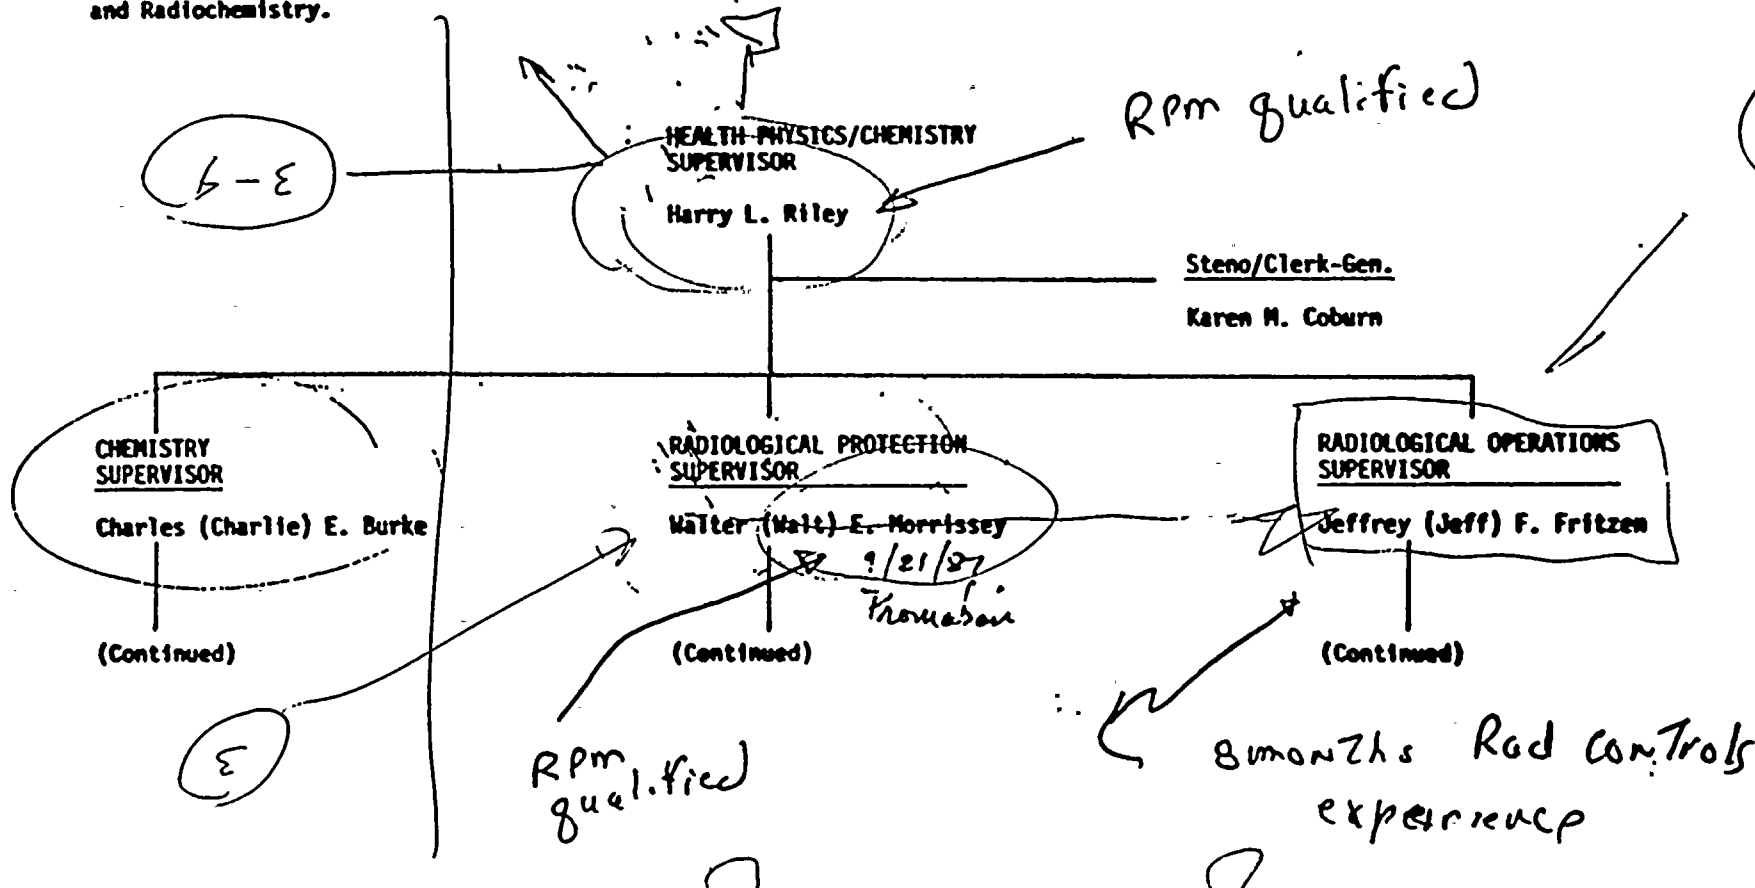 and Radiochemistry.
RPM qualified
HEALTH PHYSICS/CHEMISTRY
SUPERVISOR
Harry L. Riley
Steno/Clerk-Gen.
Karen M. Coburn
CHEMISTRY
SUPERVISOR
Charles (Charlie) E. Burke
(Continued)
RADIOLOGICAL PROTECTION
SUPERVISOR
Walter (Walt) E. Morrissey
9/21/87
(Continued)
RADIOLOGICAL OPERATIONS
SUPERVISOR
Jeffrey (Jeff) F. Fritzen
(Continued)
3
RPM
qualified
8 months Rad Controls
experience